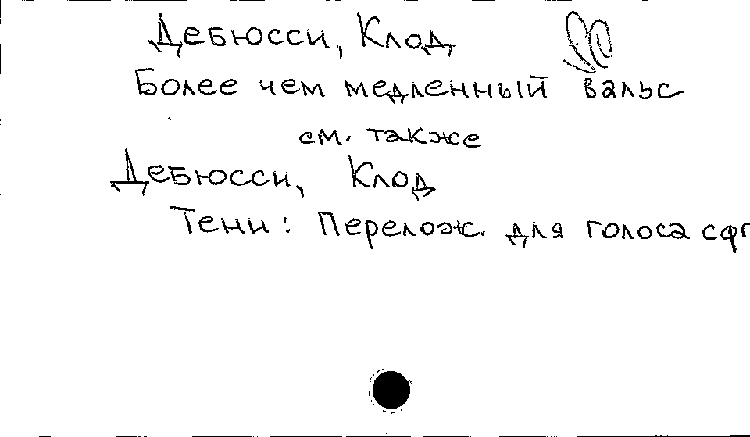 Дебюсси, Клод
Более чем медленный вальс
см. также
Дебюсси, Клод
Тени: Перелож. для голоса сфп